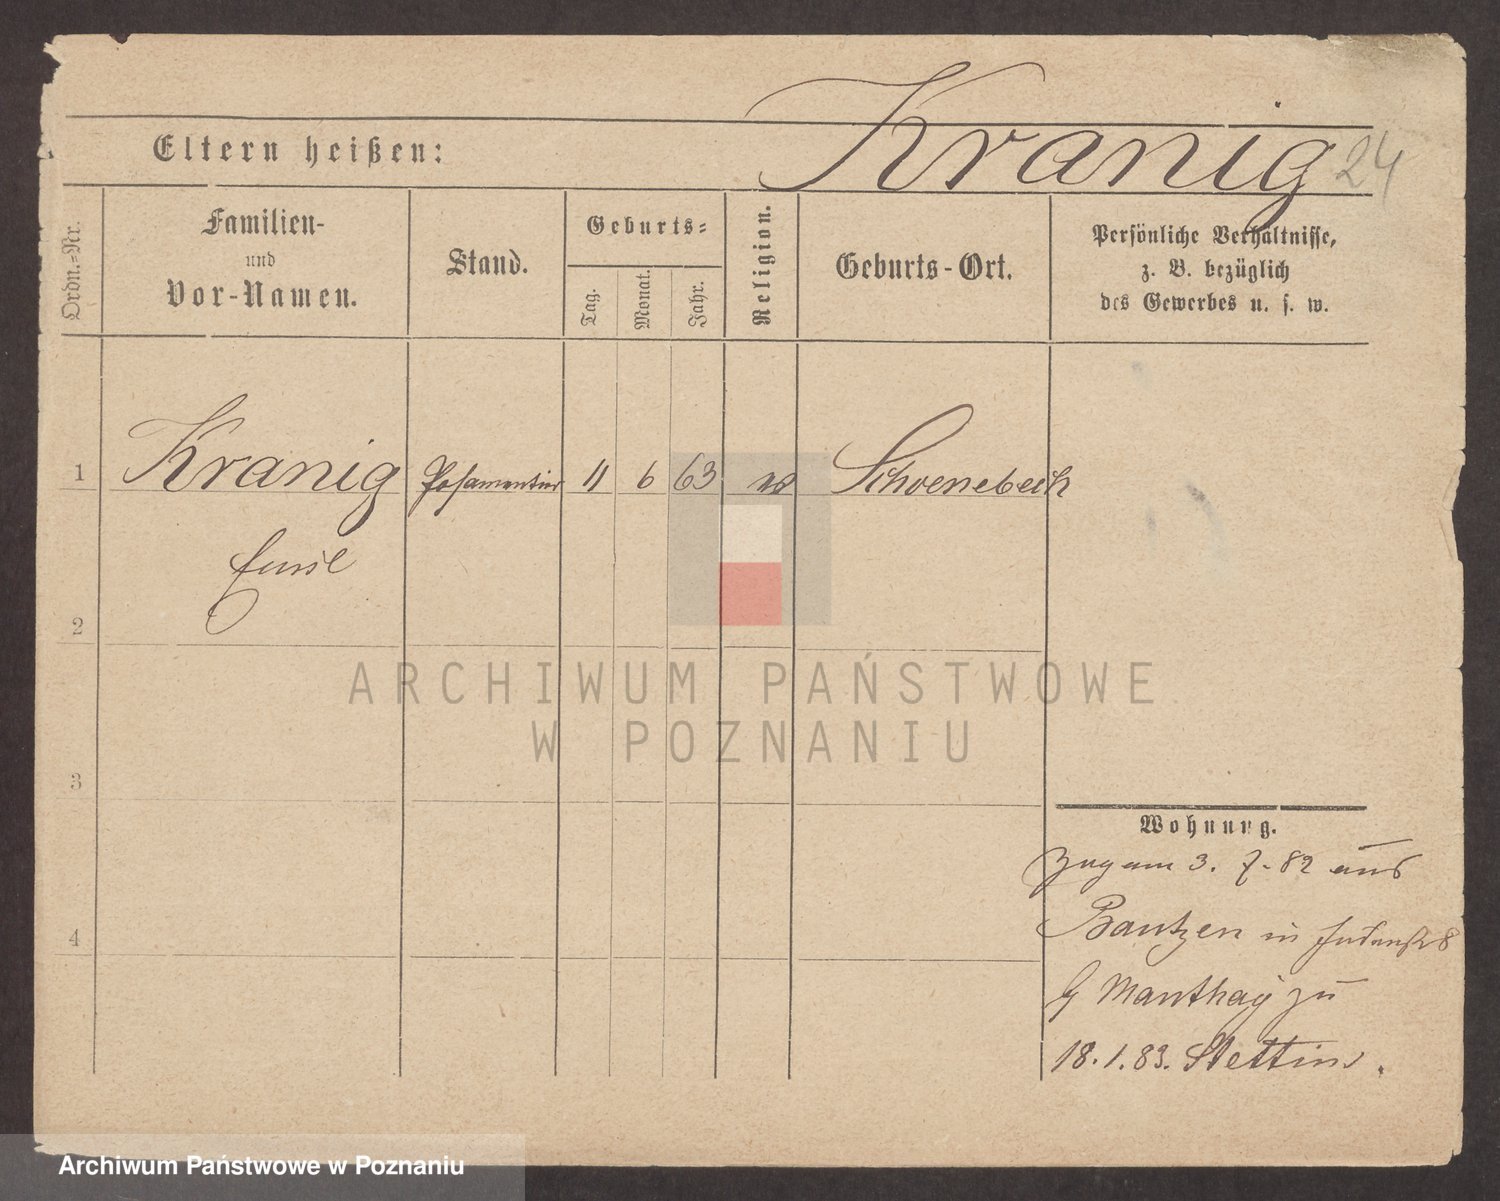 Kranig
24
Eltern heißen:
Ordn.=Nr.
Familien-
und
Vor-Namen.
Stand.
Geburts=
Tag.
Monat.
Jahr.
Religion.
Geburts-Ort.
Persönliche Verhältnisse,
z. B. bezüglich
des Gewerbes u. s. w.
1
Kranig
Posamentier
11
6
63
Schoenebeck
Emil
2
3
4
Wohnung.
Zug am 3. 7. 82 aus
Bautzen in Judenstr 8
Manthay zu
18. 1. 83. Stettin.
ARCHIWUM PAŃSTWOWE
W POZNANIU
Archiwum Państwowe w Poznaniu